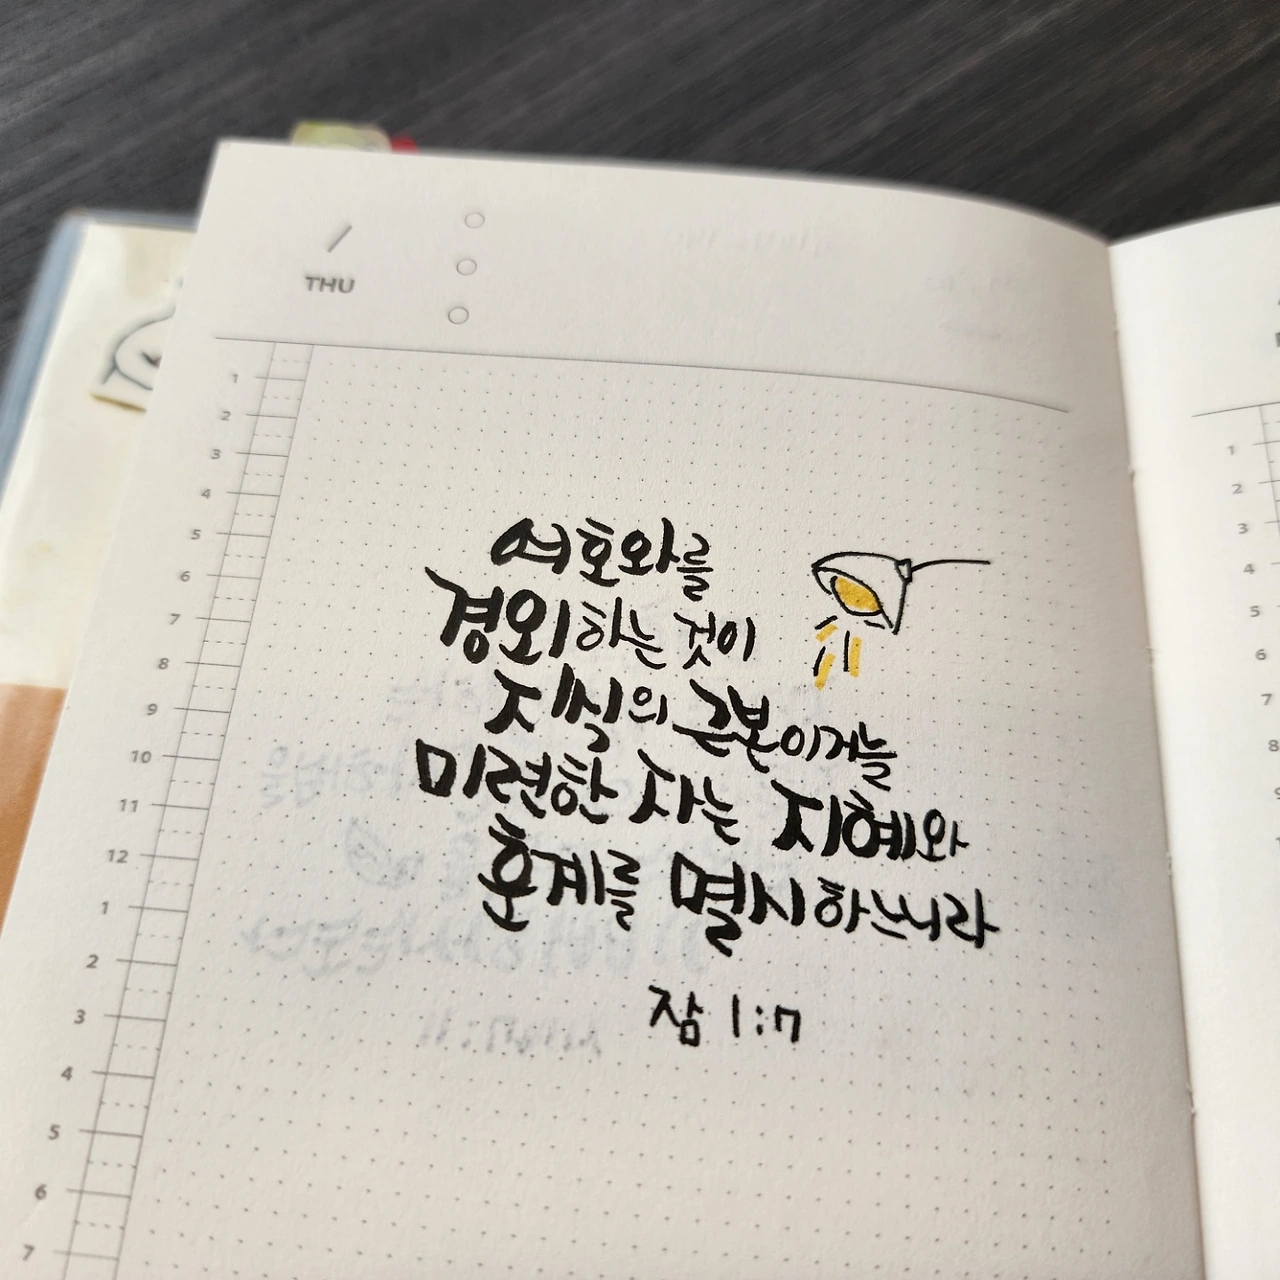 THU
1
2
3
4
5
6
7
8
9
10
11
12
1
2
3
4
5
6
7
여호와를
경외하는 것이
지식의 근본이거늘
미련한 자는 지혜와
훈계를 멸시하느니라
잠 1:7
1
2
3
4
5
6
7
8